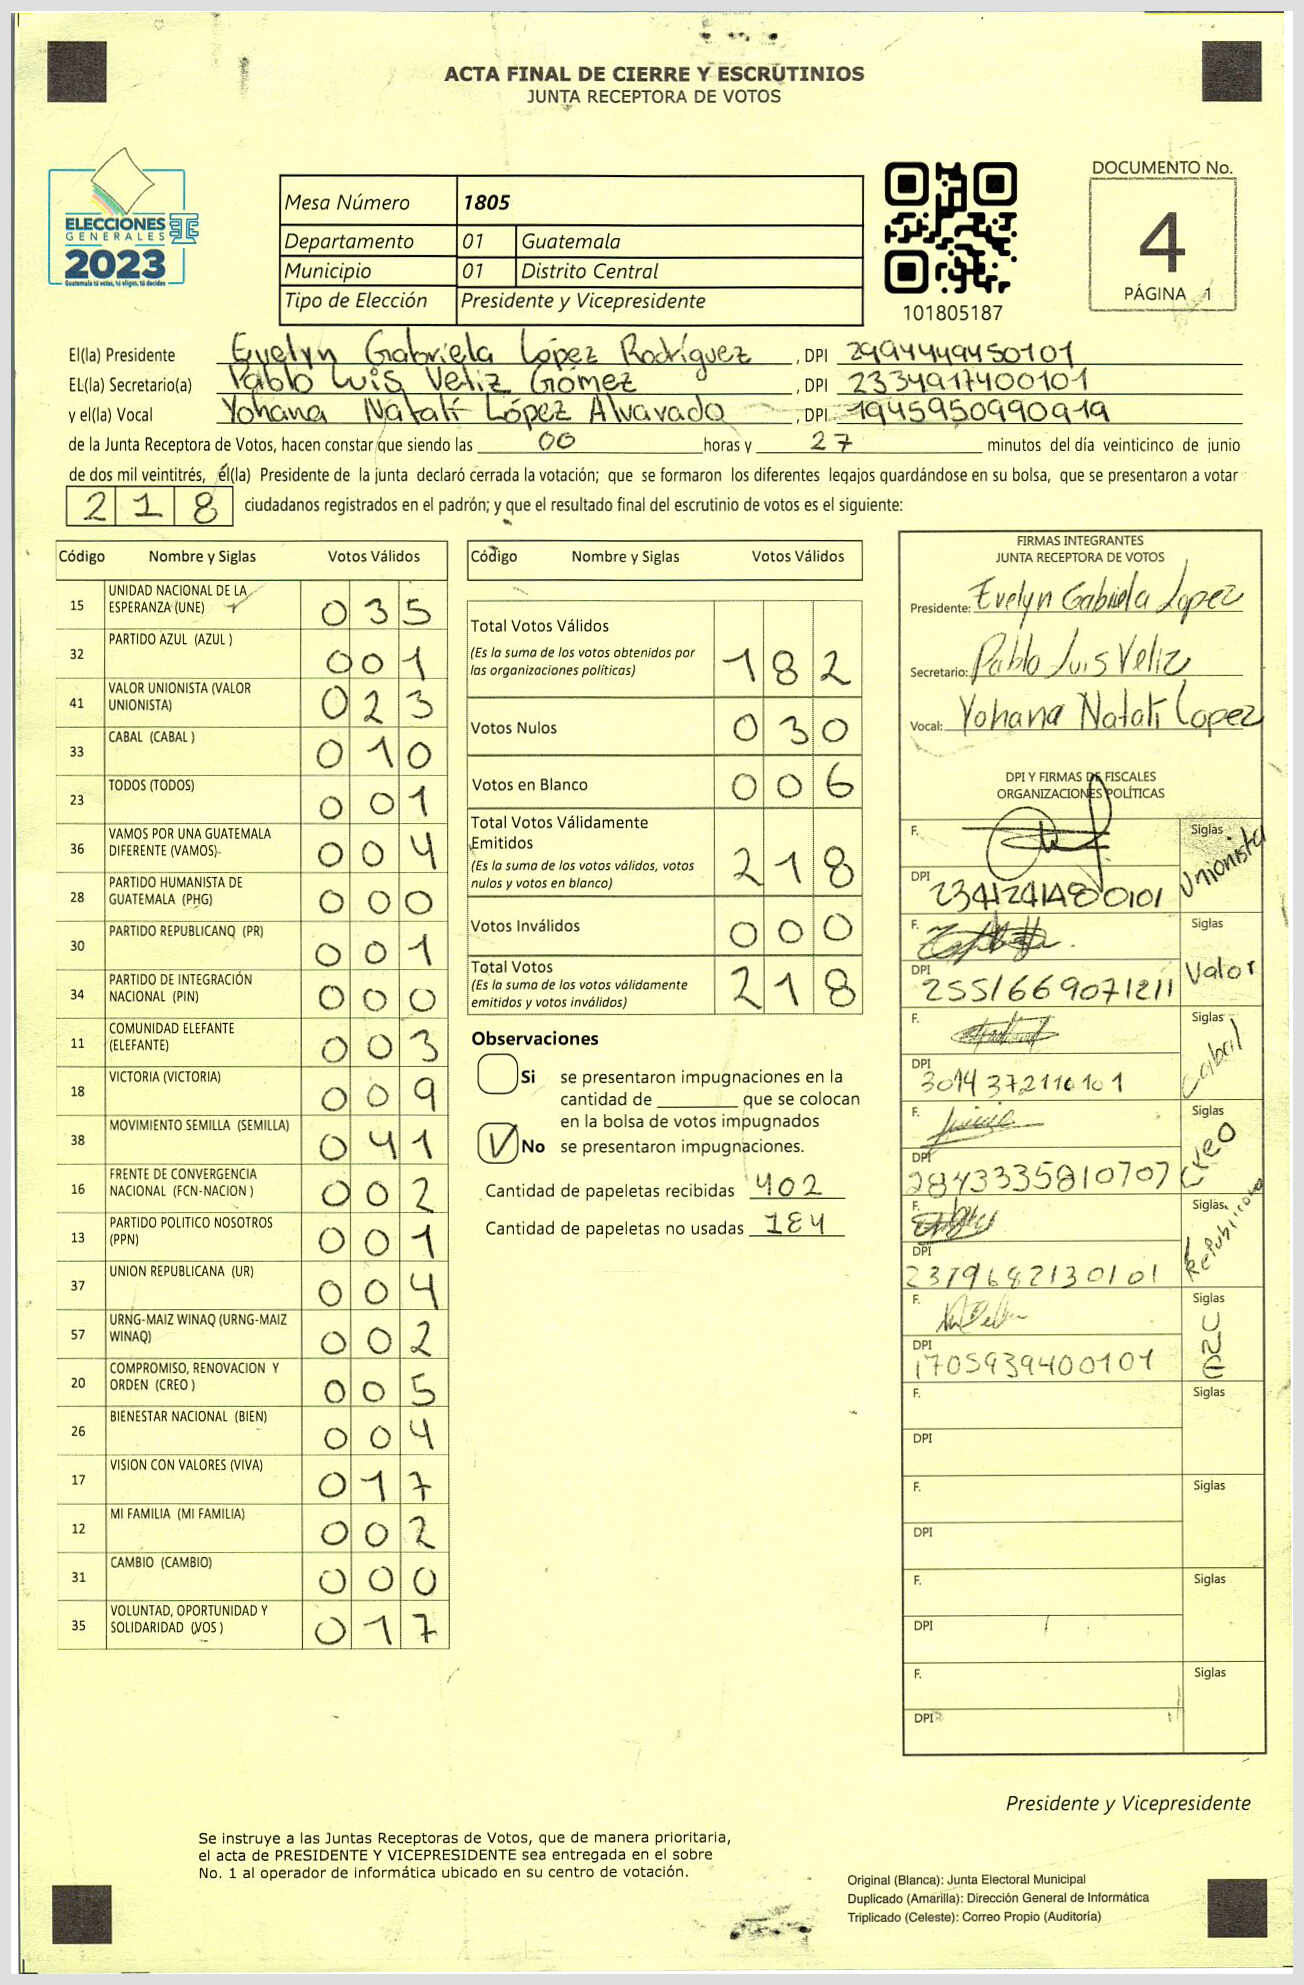 ACTA FINAL DE CIERRE Y ESCRUTINIOS
JUNTA RECEPTORA DE VOTOS
ELECCIONES
GENERALES
2023
Guatemala tú votas, tú eliges, tú decides
Mesa Número 1805
Departamento 01 Guatemala
Municipio 01 Distrito Central
Tipo de Elección Presidente y Vicepresidente
101805187
DOCUMENTO No.
4
PÁGINA 1
El(la) Presidente Evelyn Gabriela López Rodríguez, DPI 2994449450101
EL(la) Secretario(a) Pablo Luis Veliz Gómez, DPI 2334917400101
y el(la) Vocal Yohana Natalí López Alvarado, DPI 1945950990919
de la Junta Receptora de Votos, hacen constar que siendo las 00 horas y 27 minutos del día veinticinco de junio
de dos mil veintitrés, el(la) Presidente de la junta declaró cerrada la votación; que se formaron los diferentes legajos quardándose en su bolsa, que se presentaron a votar
218 ciudadanos registrados en el padrón; y que el resultado final del escrutinio de votos es el siguiente:
Código Nombre y Siglas Votos Válidos
15 UNIDAD NACIONAL DE LA ESPERANZA (UNE) 035
32 PARTIDO AZUL (AZUL ) 001
41 VALOR UNIONISTA (VALOR UNIONISTA) 023
33 CABAL (CABAL ) 010
23 TODOS (TODOS) 001
36 VAMOS POR UNA GUATEMALA DIFERENTE (VAMOS) 004
28 PARTIDO HUMANISTA DE GUATEMALA (PHG) 000
30 PARTIDO REPUBLICANO (PR) 001
34 PARTIDO DE INTEGRACIÓN NACIONAL (PIN) 000
11 COMUNIDAD ELEFANTE (ELEFANTE) 003
18 VICTORIA (VICTORIA) 009
38 MOVIMIENTO SEMILLA (SEMILLA) 041
16 FRENTE DE CONVERGENCIA NACIONAL (FCN-NACION ) 002
13 PARTIDO POLITICO NOSOTROS (PPN) 001
37 UNION REPUBLICANA (UR) 004
57 URNG-MAIZ WINAQ (URNG-MAIZ WINAQ) 002
20 COMPROMISO, RENOVACION Y ORDEN (CREO ) 005
26 BIENESTAR NACIONAL (BIEN) 004
17 VISION CON VALORES (VIVA) 017
12 MI FAMILIA (MI FAMILIA) 002
31 CAMBIO (CAMBIO) 000
35 VOLUNTAD, OPORTUNIDAD Y SOLIDARIDAD (VOS ) 017
Código Nombre y Siglas Votos Válidos
Total Votos Válidos 182
(Es la suma de los votos obtenidos por
las organizaciones políticas)
Votos Nulos 030
Votos en Blanco 006
Total Votos Válidamente
Emitidos 218
(Es la suma de los votos válidos, votos
nulos y votos en blanco)
Votos Inválidos 000
Total Votos 218
(Es la suma de los votos válidamente
emitidos y votos inválidos)
Observaciones
Si se presentaron impugnaciones en la
cantidad de ________ que se colocan
en la bolsa de votos impugnados
V No se presentaron impugnaciones.
Cantidad de papeletas recibidas 402
Cantidad de papeletas no usadas 184
FIRMAS INTEGRANTES
JUNTA RECEPTORA DE VOTOS
Presidente: Evelyn Gabriela Lopez
Secretario: Pablo Luis Veliz
Vocal: Yohana Natalí Lopez
DPI Y FIRMAS DE FISCALES
ORGANIZACIONES POLÍTICAS
F. Siglas Unionista
DPI 2341241480101
F. Siglas Valor
DPI 2551669071211
F. Siglas
DPI 3014372110101
F. Siglas Creo
DPI 2843335810707
F. Siglas Republicano
DPI 2379682130101
F. Siglas UNE
DPI 1705939400101
F. Siglas
DPI
F. Siglas
DPI
F. Siglas
DPI
F. Siglas
DPI
Presidente y Vicepresidente
Se instruye a las Juntas Receptoras de Votos, que de manera prioritaria,
el acta de PRESIDENTE Y VICEPRESIDENTE sea entregada en el sobre
No. 1 al operador de informática ubicado en su centro de votación.
Original (Blanca): Junta Electoral Municipal
Duplicado (Amarilla): Dirección General de Informática
Triplicado (Celeste): Correo Propio (Auditoría)